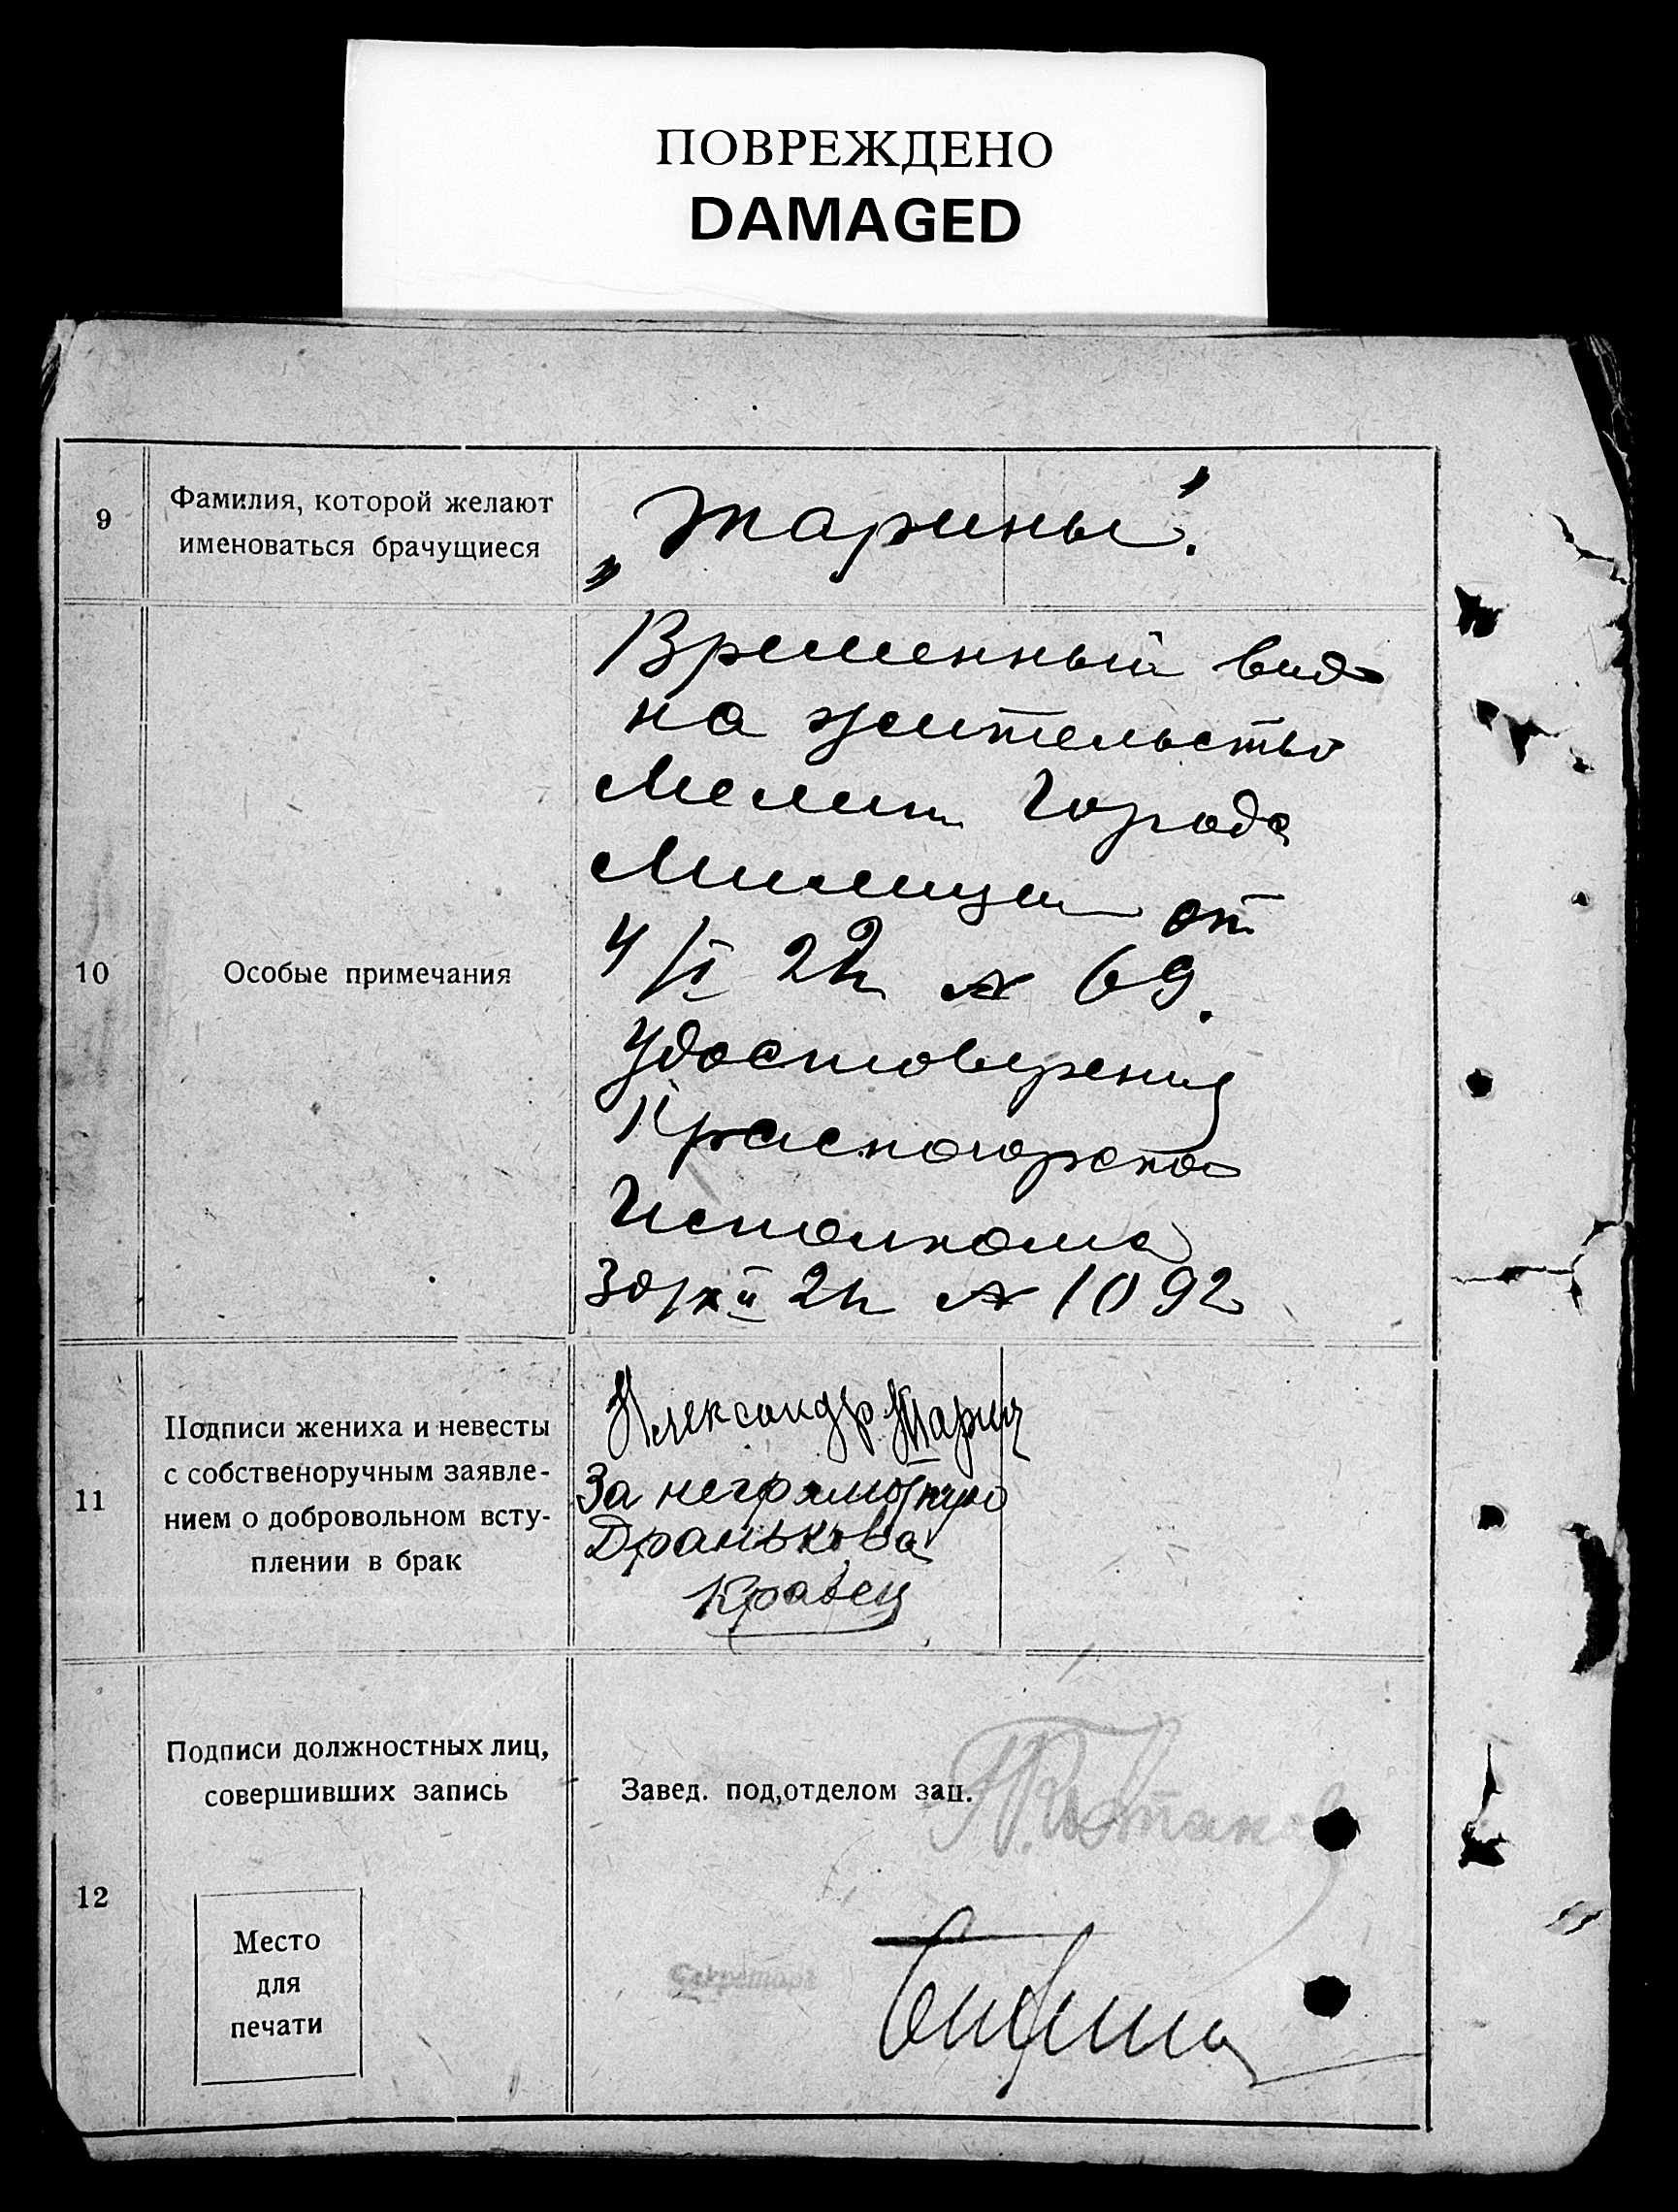 ПОВРЕЖДЕНО
DAMAGED
9
Фамилия, которой желают
именоваться брачущиеся
„Тарины".
10
Особые примечания
Временный вид
на жительство
Мелит Города
Милиции от
4/I 22 № 69.
Удостоверения
Красногорского
Исполкома
30/XII 21 № 1092
11
Подписи жениха и невесты
с собственоручным заявле-
нием о добровольном всту-
плении в брак
Александр Тарин
За неграмотную
Дранькова
Кравец
12
Подписи должностных лиц,
совершивших запись
Завед. под,отделом зап.
Секретарь
Место
для
печати